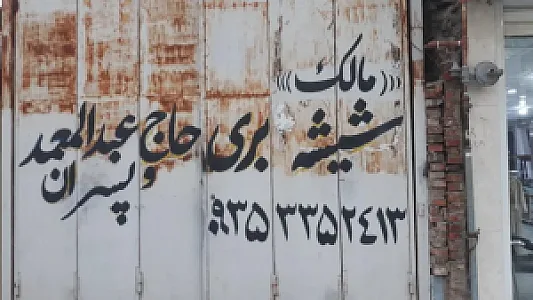 (((مالک)))
شیشه بری حاج عبدالمحمد
و پسران
۰۹۳۵ ۳۳۵۲۴۱۳